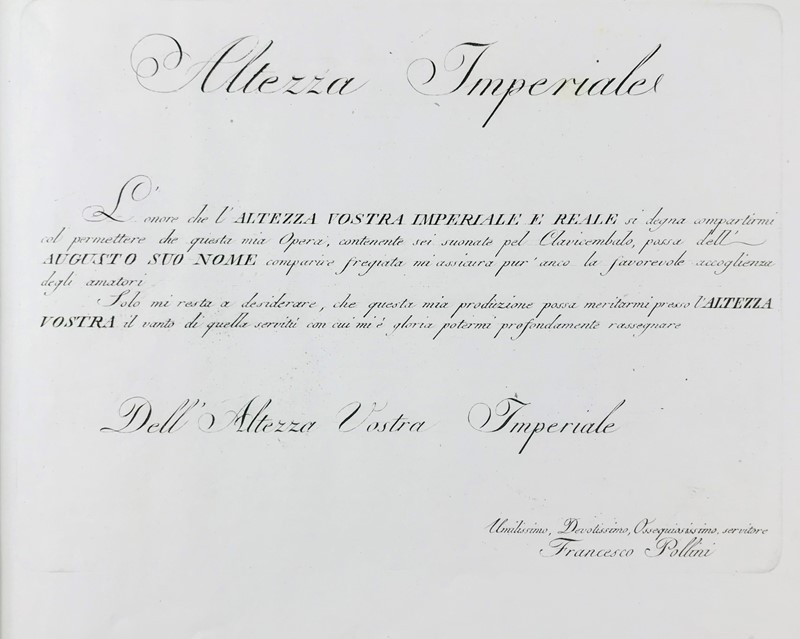 Altezza Imperiale
L'onore che l'ALTEZZA VOSTRA IMPERIALE E REALE si degna compartirmi
col permettere che questa mia Opera, contenente sei suonate pel Clavicembalo, possa dell'
AUGUSTO SUO NOME comparire fregiata mi assicura pur' anco la favorevole accoglienza
degli amatori
Solo mi resta a desiderare, che questa mia produzione possa meritarmi presso l'ALTEZZA
VOSTRA il vanto di quella servitù con cui mi è gloria potermi profondamente rassegnare
Dell'Altezza Vostra Imperiale
Umilissimo, Devotissimo, Ossequiosissimo, servitore
Francesco Pollini